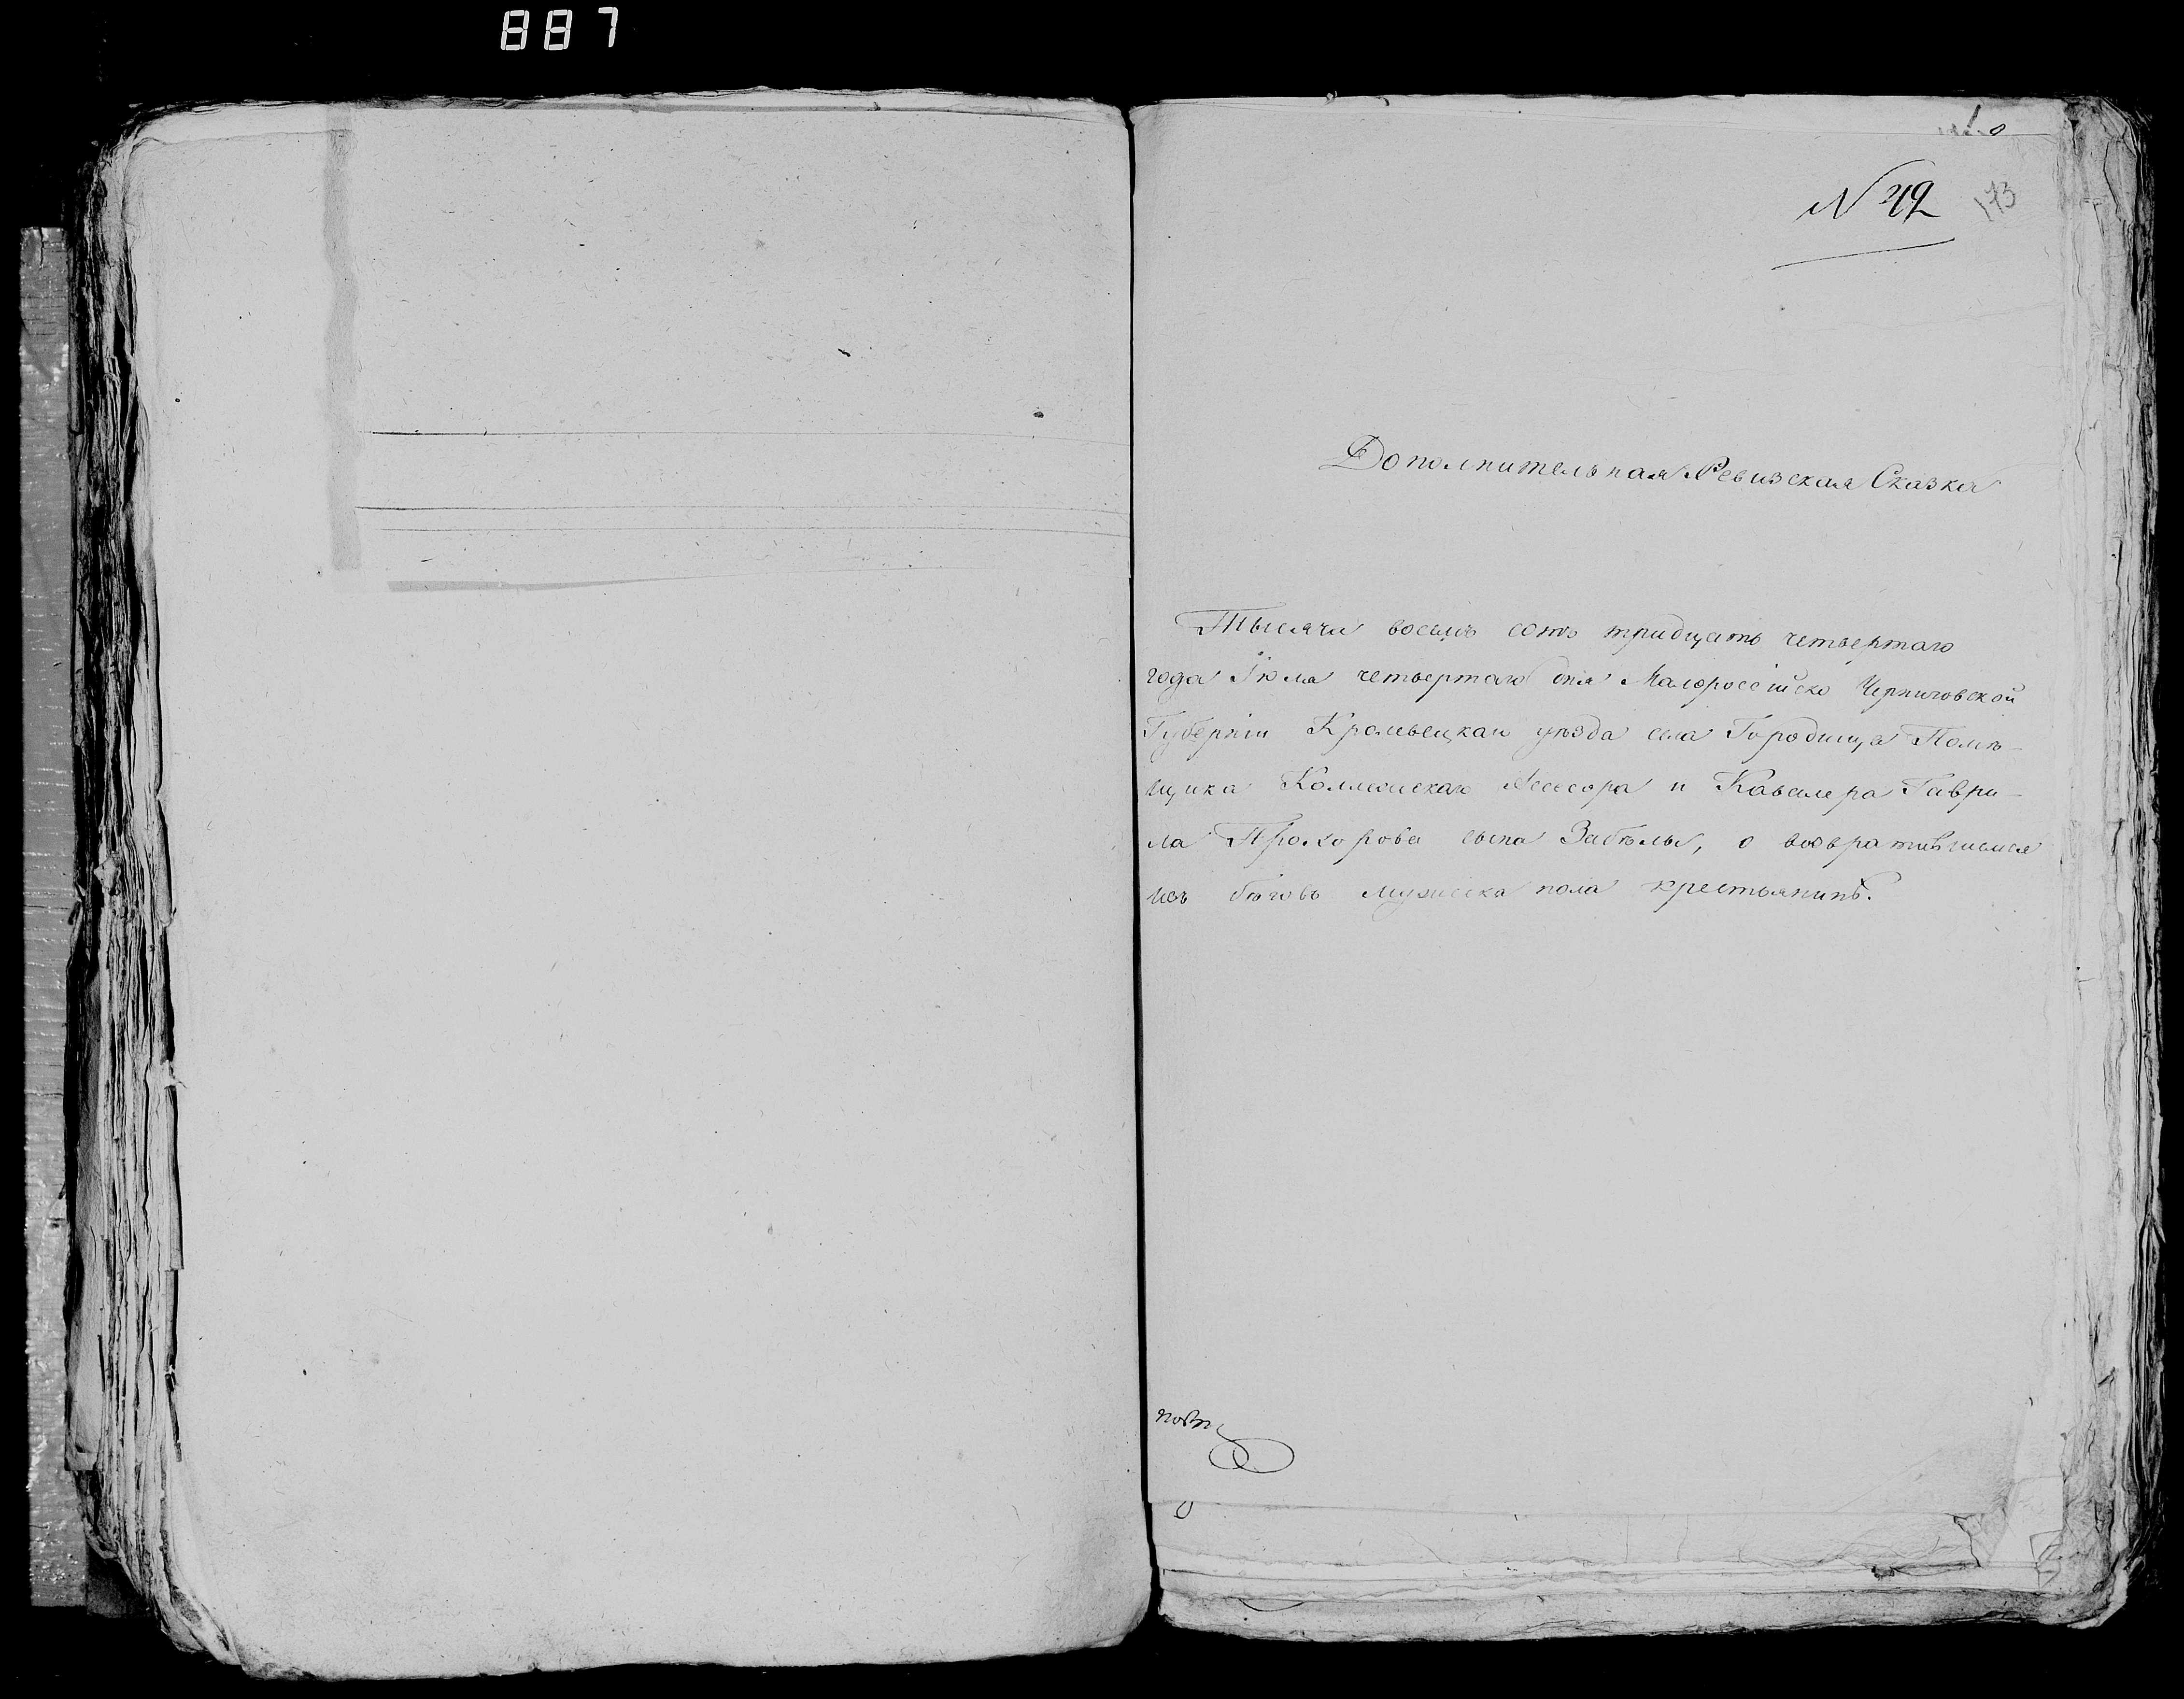 887
N 42
173
Дополнительная Ревизская Сказка
Тысяча восемь сотъ тридцать четвертаго
года Іюля четвертаго дня Малороссійско Черниговской
Губерніи Кролевецкаго уѣзда села Городища Помѣ-
щика Коллежскаго Асессора и Кавалера Гаври-
ла Прохорова сына Забѣлы, о возвратившемся
изъ бѣговъ мужеска пола крестьянинѣ.